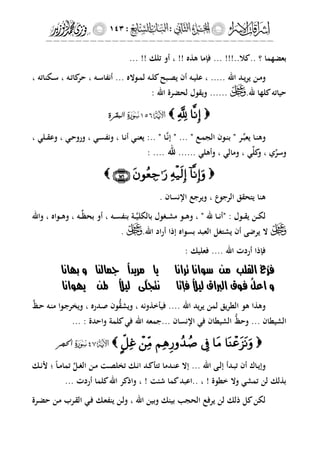 إشراقات الإسراء : الجزء الثاني : الباب الثاني : ١٤٣
بعضهما ؟ .. كلا ..!!! ... فإما هذه !! ، أو تلك !! ...
ومن يريد الله ..... ، عليه أن يصبح كله لمولاه ... أنفاسه ، حركاته ، سكناته ،
حياته كلها لله ...... ويقول لحضرة الله :
﴿ إِنَّا لِلَّهِ ﴾ ١٥٦ البقرة
وهنا يعبّر " بنون الجمع " ... " إنّا " ...: يعني أنا ، ونفسي ، وروحي ، وعقلي ،
وسرّي ، وكلّي ، ومالي ، وأهلي ...... لله .... :
﴿ وَإِنَّا إِلَيْهِ رَاجِعُونَ ١٥٦ ﴾
هنا يتحقق الرجوع ، ويرجع الإنسان .
لكن يقول : "أنا لله " ، وهو مشغول بالكليّة بنفسه ، أو بحظّه ، وهواه ، والله
لا يرضى أن يشتغل العبد بسواه إذا أراد الله .
فإذا أردت الله .... فعليك :
فرّغ القلب من سوانا ترانا يا مريداً جمالنا و بهانا
و اعلُ فوق البراق ليلاً فإنا نتجلى ليلاً لمن يهوانا
وهذا هو الطريق لمن يريد الله .... فيأخذونه ، ويشقُّون صدره ، ويخرجوا منه حظَّ
الشيطان ... وحظُّ الشيطان في الإنسان ...جمعه الله في كلمة واحدة : ...
﴿ وَنَزَعْنَا مَا فِي صُدُورِهِم مِّنْ غِلٍّ ﴾ ٤٧ الحجر
وإياك أن تبدأ إلى الله ... إلا عندما تتأكد انك تخلصت من الغلّ تماماً ؛ لأنك
بذلك لن تمشي ولا خطوة ! ، ..اعبد كما شئت ! ، واذكر الله كلما أردت ...
لكن كل ذلك لن يرفع الحجب بينك وبين الله ، ولن ينفعك في القرب من حضرة